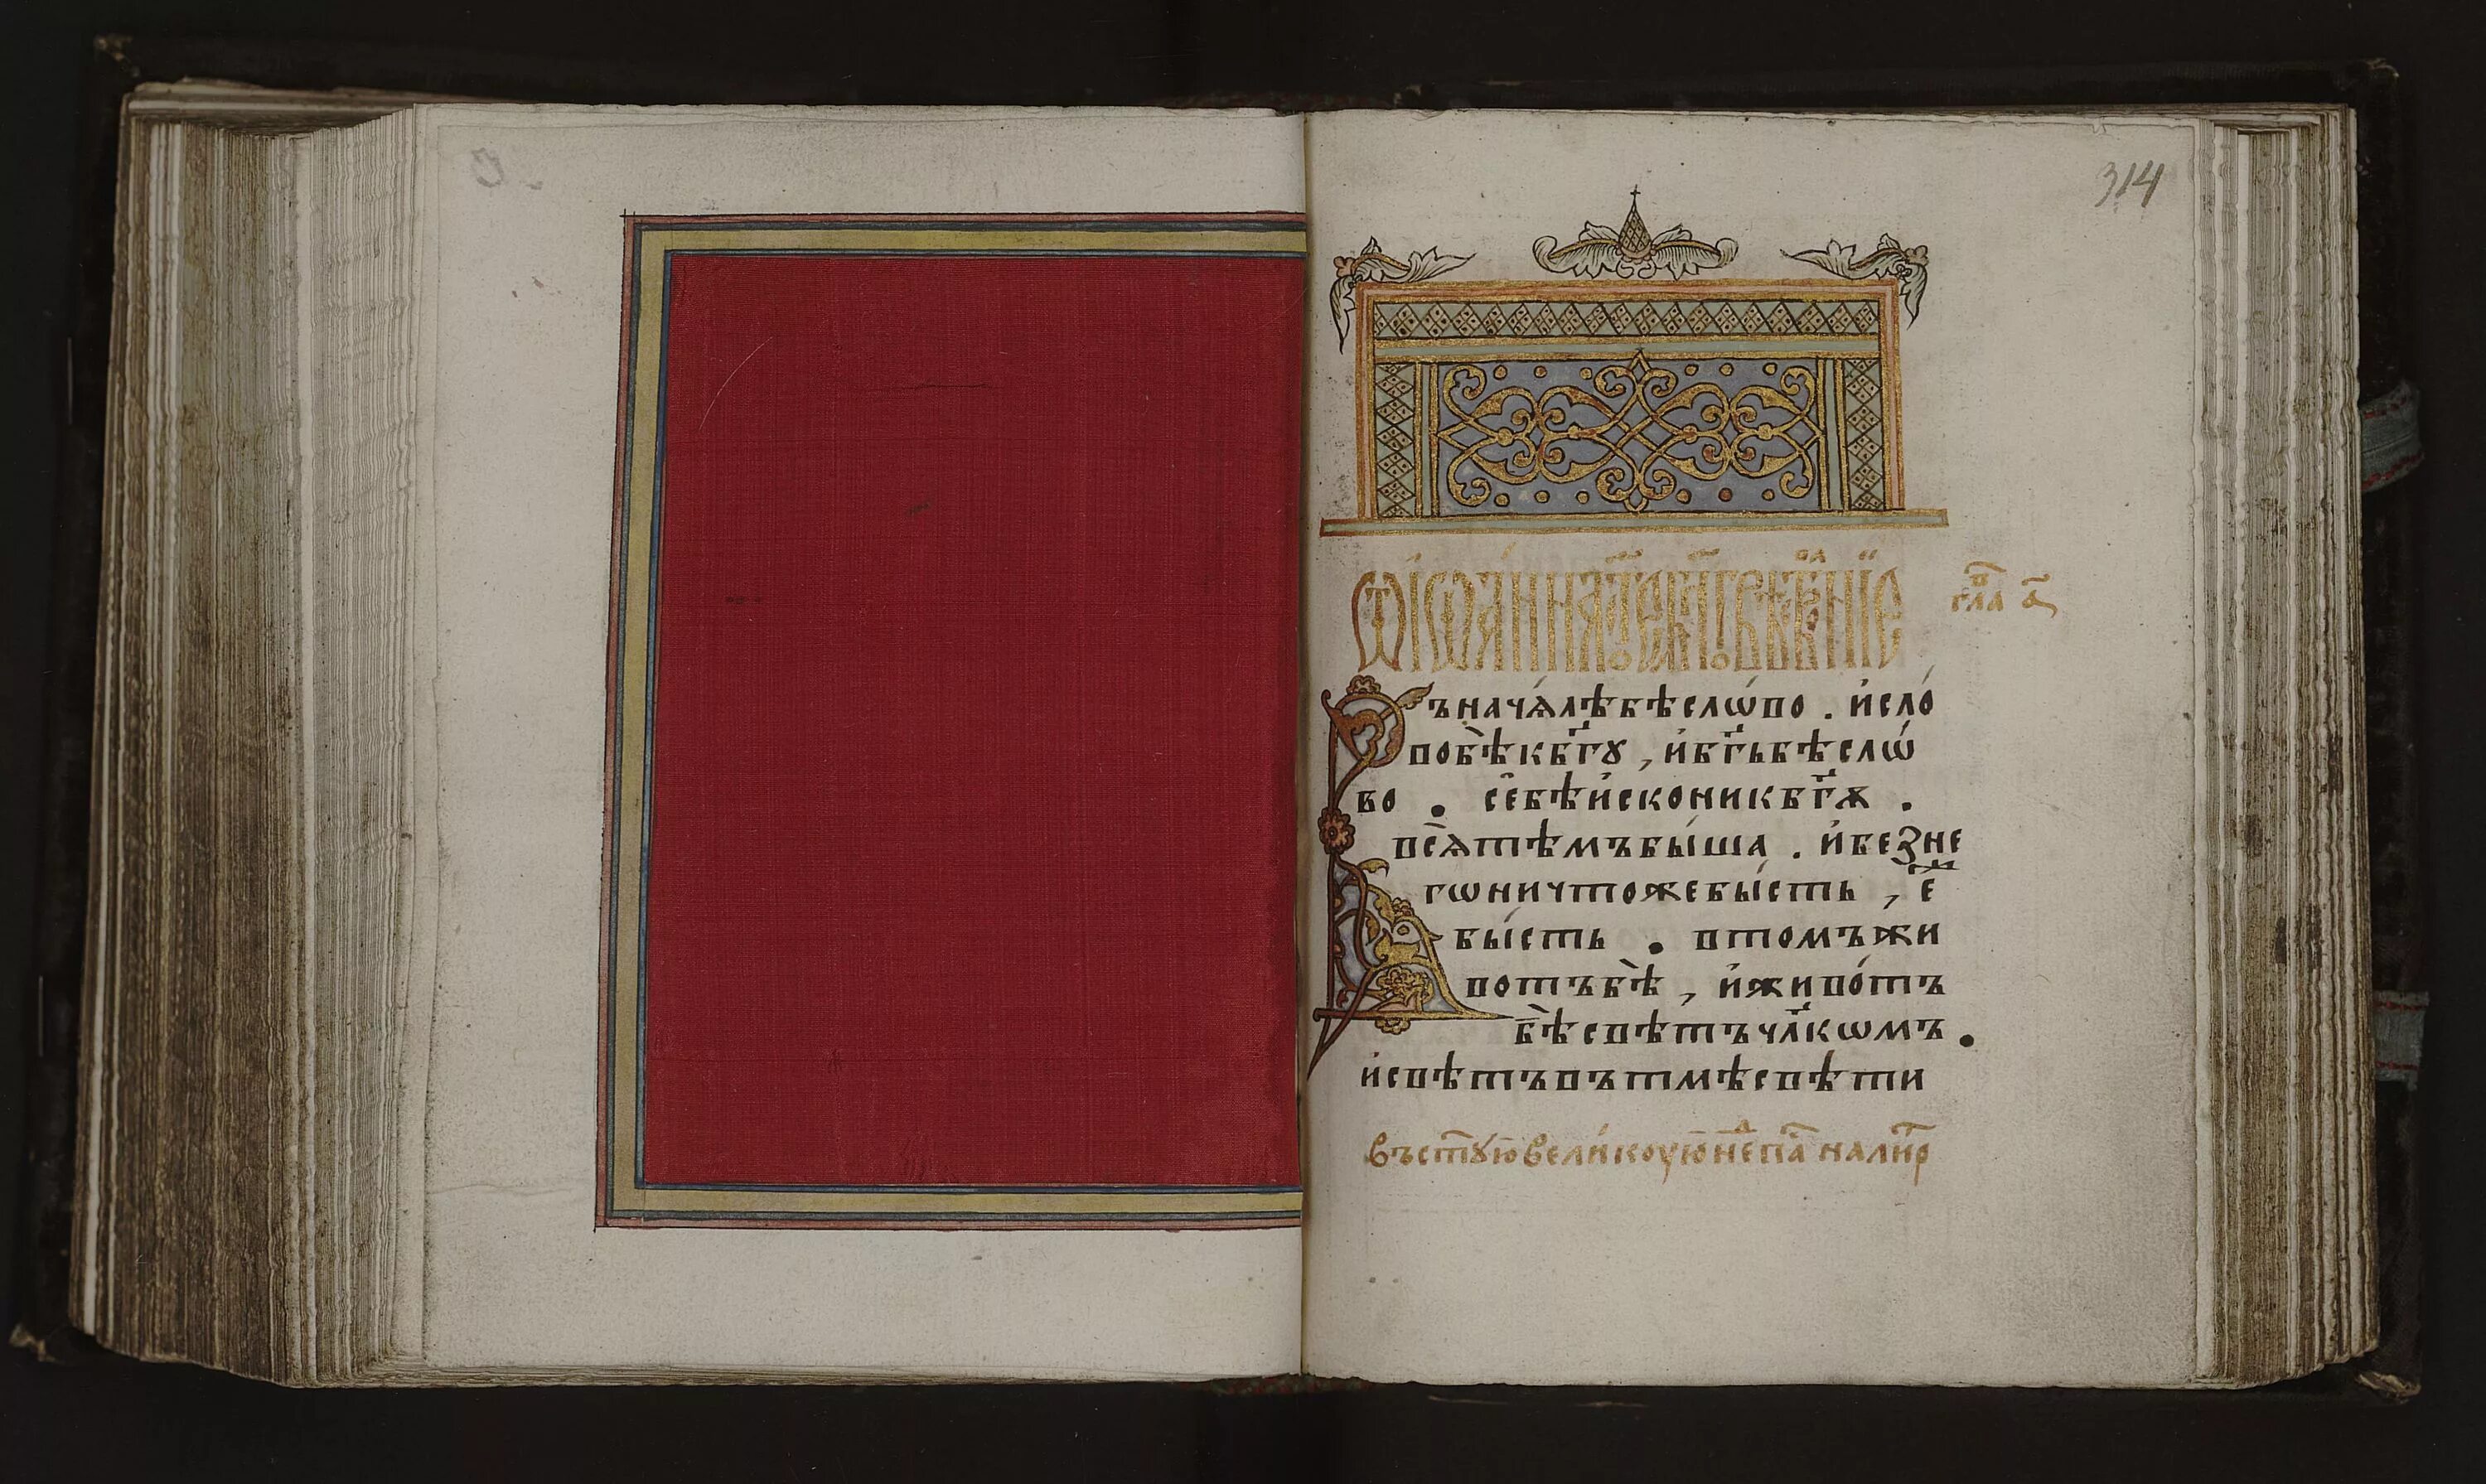 314
Ѿ іѡа́нна ст҃о е҃ѵⷢ҇лїа бл҃говѣствова́нїе
гл҃а а҃
Въ нача́лѣ бѣ сло́во . и҆ сло́
во бѣ̀ к бг҃ꙋ , и҆ бг҃ъ бѣ сло́
во . се́ бѣ и҆скони к бг҃ѫ .
всѧ̀ тѣмъ бы́ша . и҆ без не
гѡ ничтоже бы́сть , є҆́же
бы́сть . в томъ жи
вотъ бѣ̀ , и҆ живо́тъ
бѣ̀ свѣтъ чл҃кѡмъ .
и҆ свѣтъ въ тмѣ свѣти
въ ст҃ꙋю вели́коую неⷣ҇ па́ⷭ҇ на лиⷮ҇ⷬ҇